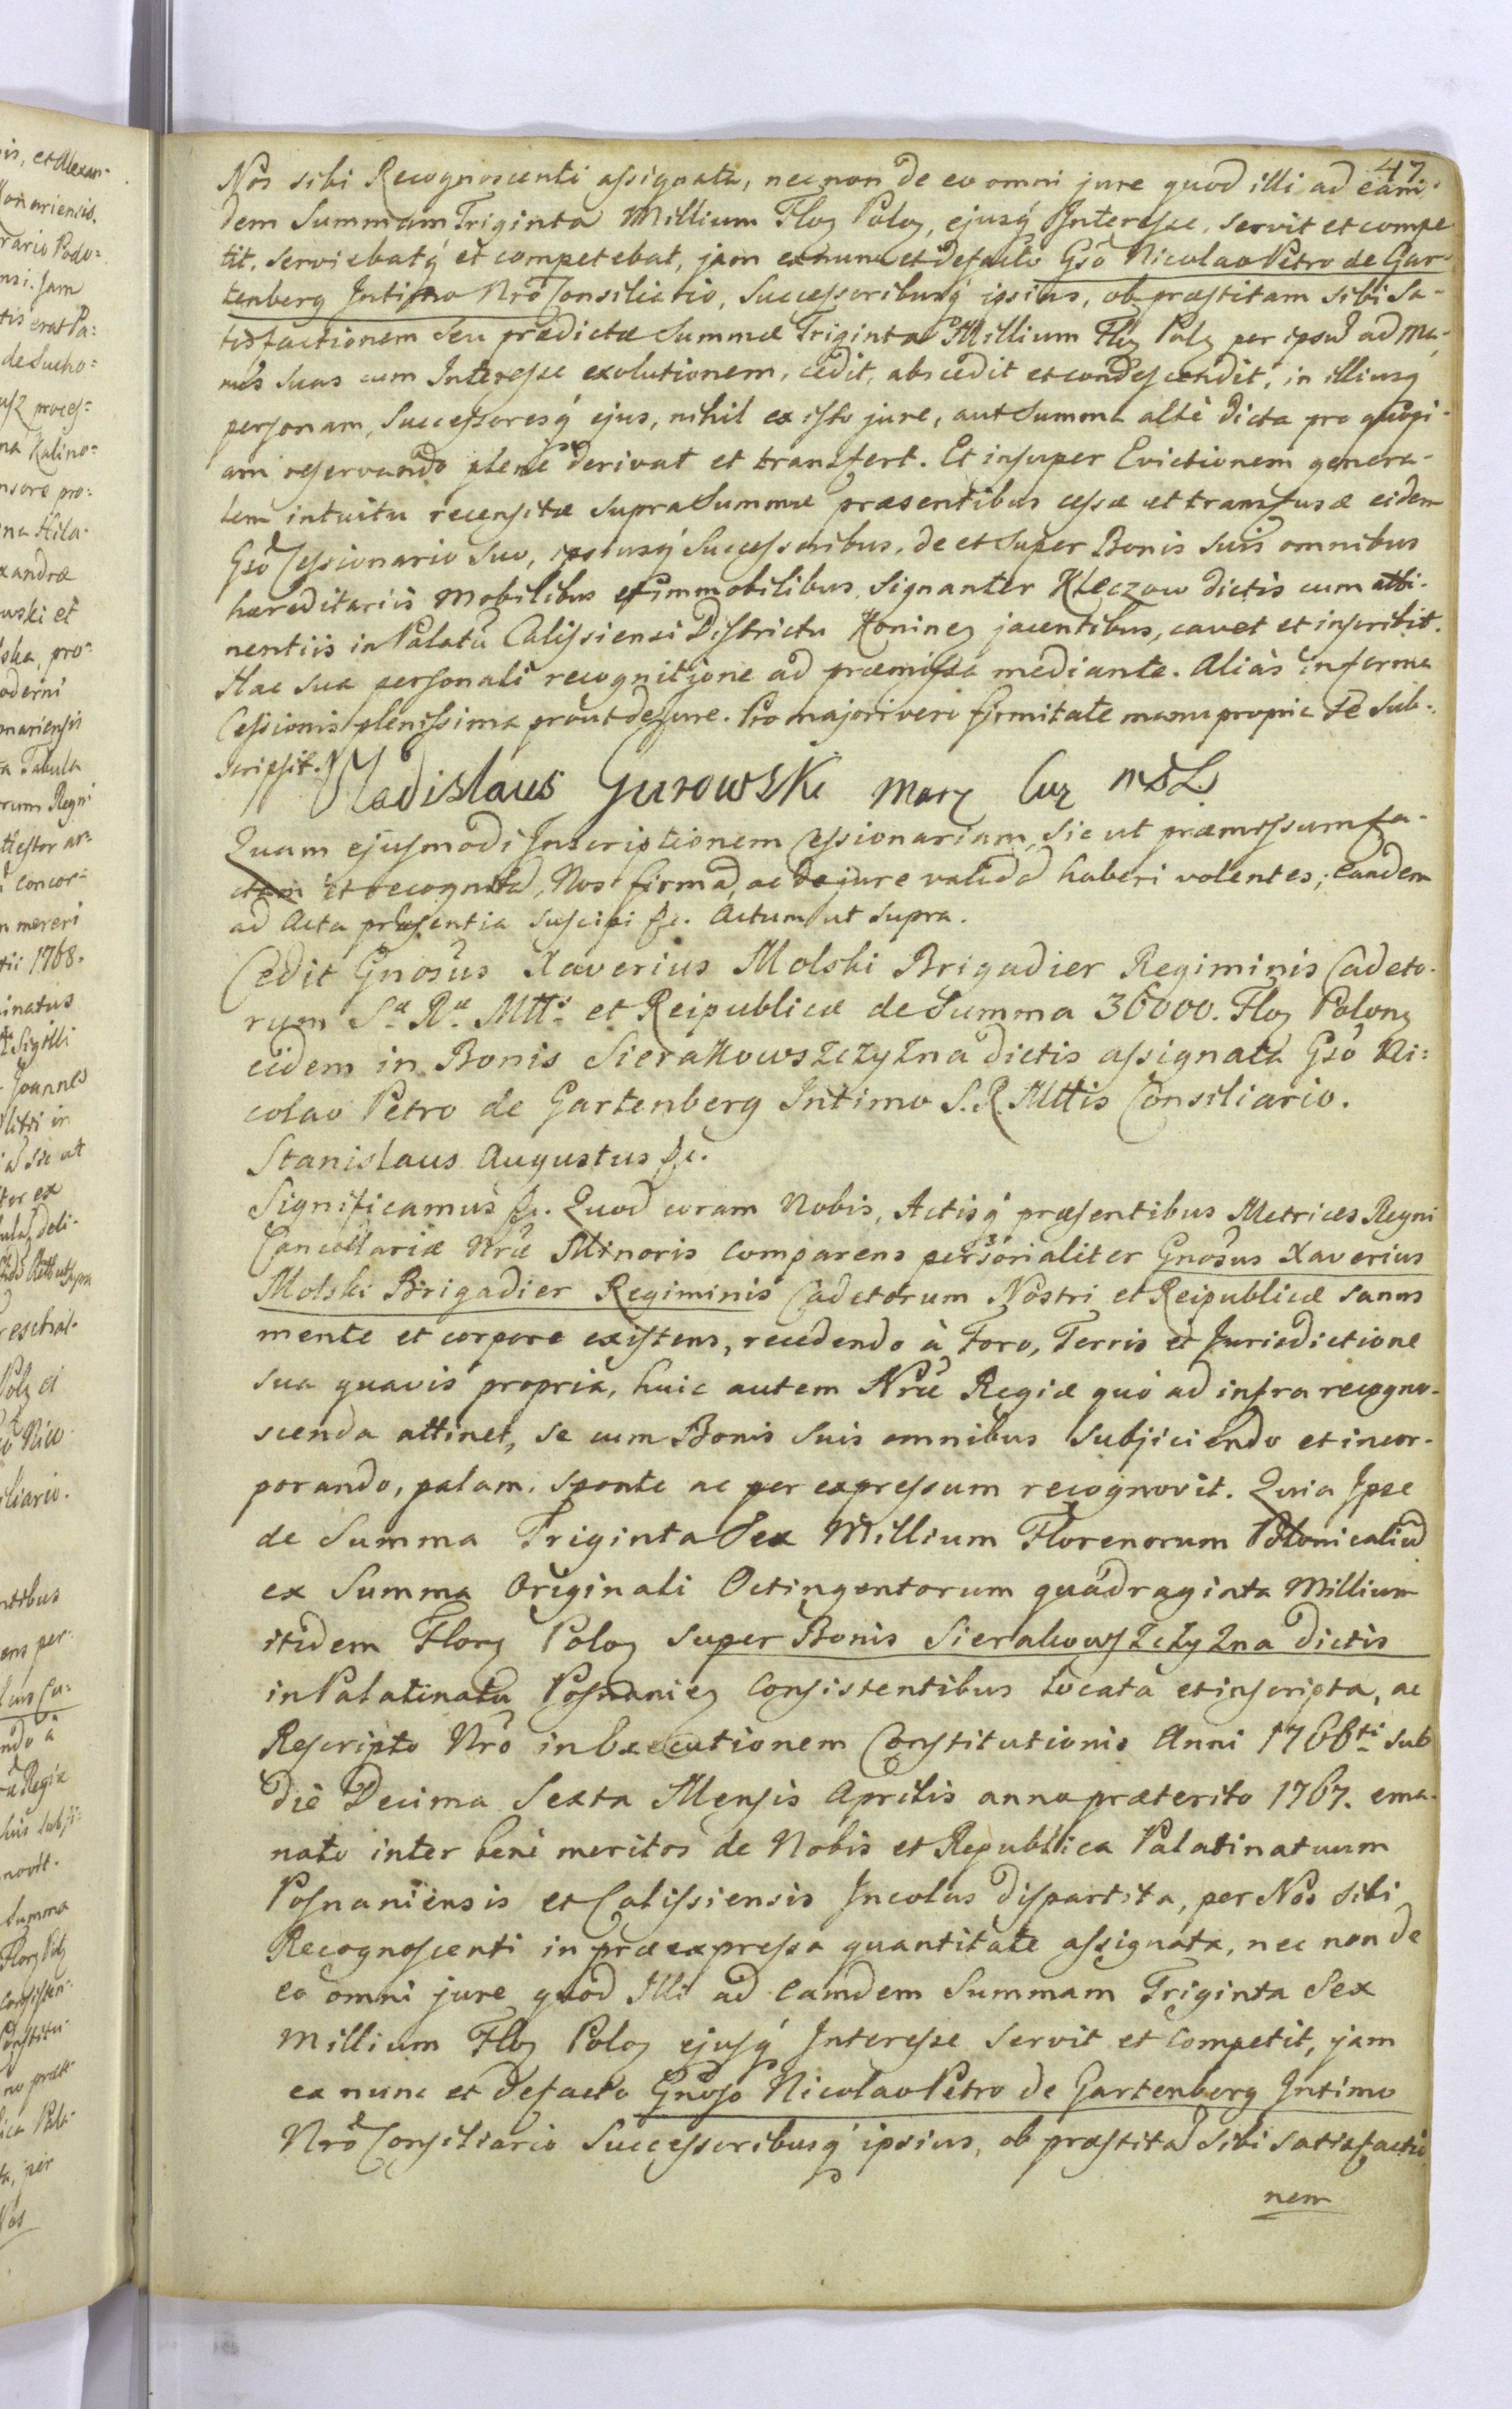 47
Nos sibi Recognoscenti assignata, nec non de eo omni jure quod illi ad eam-
dem Summam Triginta Millium Flor Polor, ejusq Interesse, servit et compe
tit, serviebatq et competebat, jam ex nunc et de facto Gso Nicolao Petro de Gar-
tenberg Intimo Nro Consiliario, Successoribusq ipsius, ob præstitam sibi Sa-
tisfactionem seu prædictæ Summæ Triginta Millium Flor Polo per ipsu ad ma-
nus suas cum Interesse exolutionem, cedit, abscedit et condescendit, in illiusq
personam, Successoresq ejus, nihil ex isto jure, aut Summa altè dicta pro quopi-
am reservando plenè derivat et transfert. Et insuper Evictionem genera-
lem intuitu recensitæ supra Summæ præsentibus cessæ et transfusæ eidem
Gso Cessionario suo, ipsiusq Successoribus, de et super Bonis suis omnibus
hæreditariis Mobilibus et immobilibus, signanter Kleczow dictis cum atti-
nentiis in Palatu Calissiensi Districtu Konine jacentibus, cavet et inscribit.
Hac sua personali recognitione ad præmissa mediante. Aliàs in forma
Cessionis plenissima prout de jure. Pro majori veri firmitate manu propria se sub-
scripsit. Wladislaus Gurowski Mar Cur M D L
Quam ejusmodi Inscriptionem Cessionariam, sic ut præmissum fa-
ctam et recognita, Nos firma, ac de jure valida haberi volentes; eandem
ad Acta præsentia suscipi &c. Actum ut supra.
Cedit Gnosus Xaverius Molski Brigadier Regiminis Cadeto-
rum S.æ R.æ Mtt.s et Reipublicæ de Summa 36000. Flor Polon
eidem in Bonis Sierakowszczyzna dictis assignata Gso Ni:
colao Petro de Gartenberg Intimo S. R. Mttis Consiliario.
Stanislaus Augustus &c.
Significamus &c. Quod coram Nobis, Actisq præsentibus Metrices Regni
Cancellariæ Nræ Minoris comparens personaliter Gnosus Xaverius
Molski Brigadier Regiminis Cadetorum Nostri et Reipublicæ sanus
mente et corpore existens, recedendo à Foro, Terris et Jurisdictione
sua quavis propria, huic autem Nræ Regiæ quo ad infra recogno-
scenda attinet, se cum Bonis suis omnibus subjiciendo et incor-
porando, palam, sponte ac per expressum recognovit. Quia Ipse
de Summa Triginta Sex Millium Florenorum Polonicaliu
ex Summa Originali Octingentorum quadraginta Millium
itidem Flor Polo super Bonis Sierakowszczyzna dictis
in Palatinatu Posnanie consistentibus locata et inscripta, ac
Rescripto Nro in Executionem Constitutionis Anni 1766ti sub
die Decima Sexta Mensis Aprilis anno præterito 1767. ema-
nato inter bene meritos de Nobis et Republica Palatinatuum
Posnaniensis et Calissiensis Incolas dispartita, per Nos sibi
Recognoscenti in præexpressa quantitate assignata, nec non de
eo omni jure quod Illi ad eamdem Summam Triginta Sex
Millium Flor Polo ejusq Interesse servit et competit, jam
ex nunc et de facto Gnoso Nicolao Petro de Gartenberg Intimo
Nro Consiliario Successoribusq ipsius, ob præstita sibi satisfactio
nem